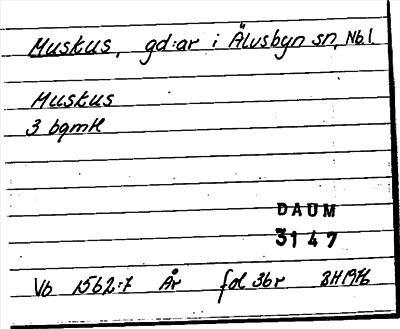 Muskus, gd:ar i Älvsbyn sn, Nb l.
Muskus
3 bgmH
DAUM
3147
Vb 1562:7 År fol 36r BH1976